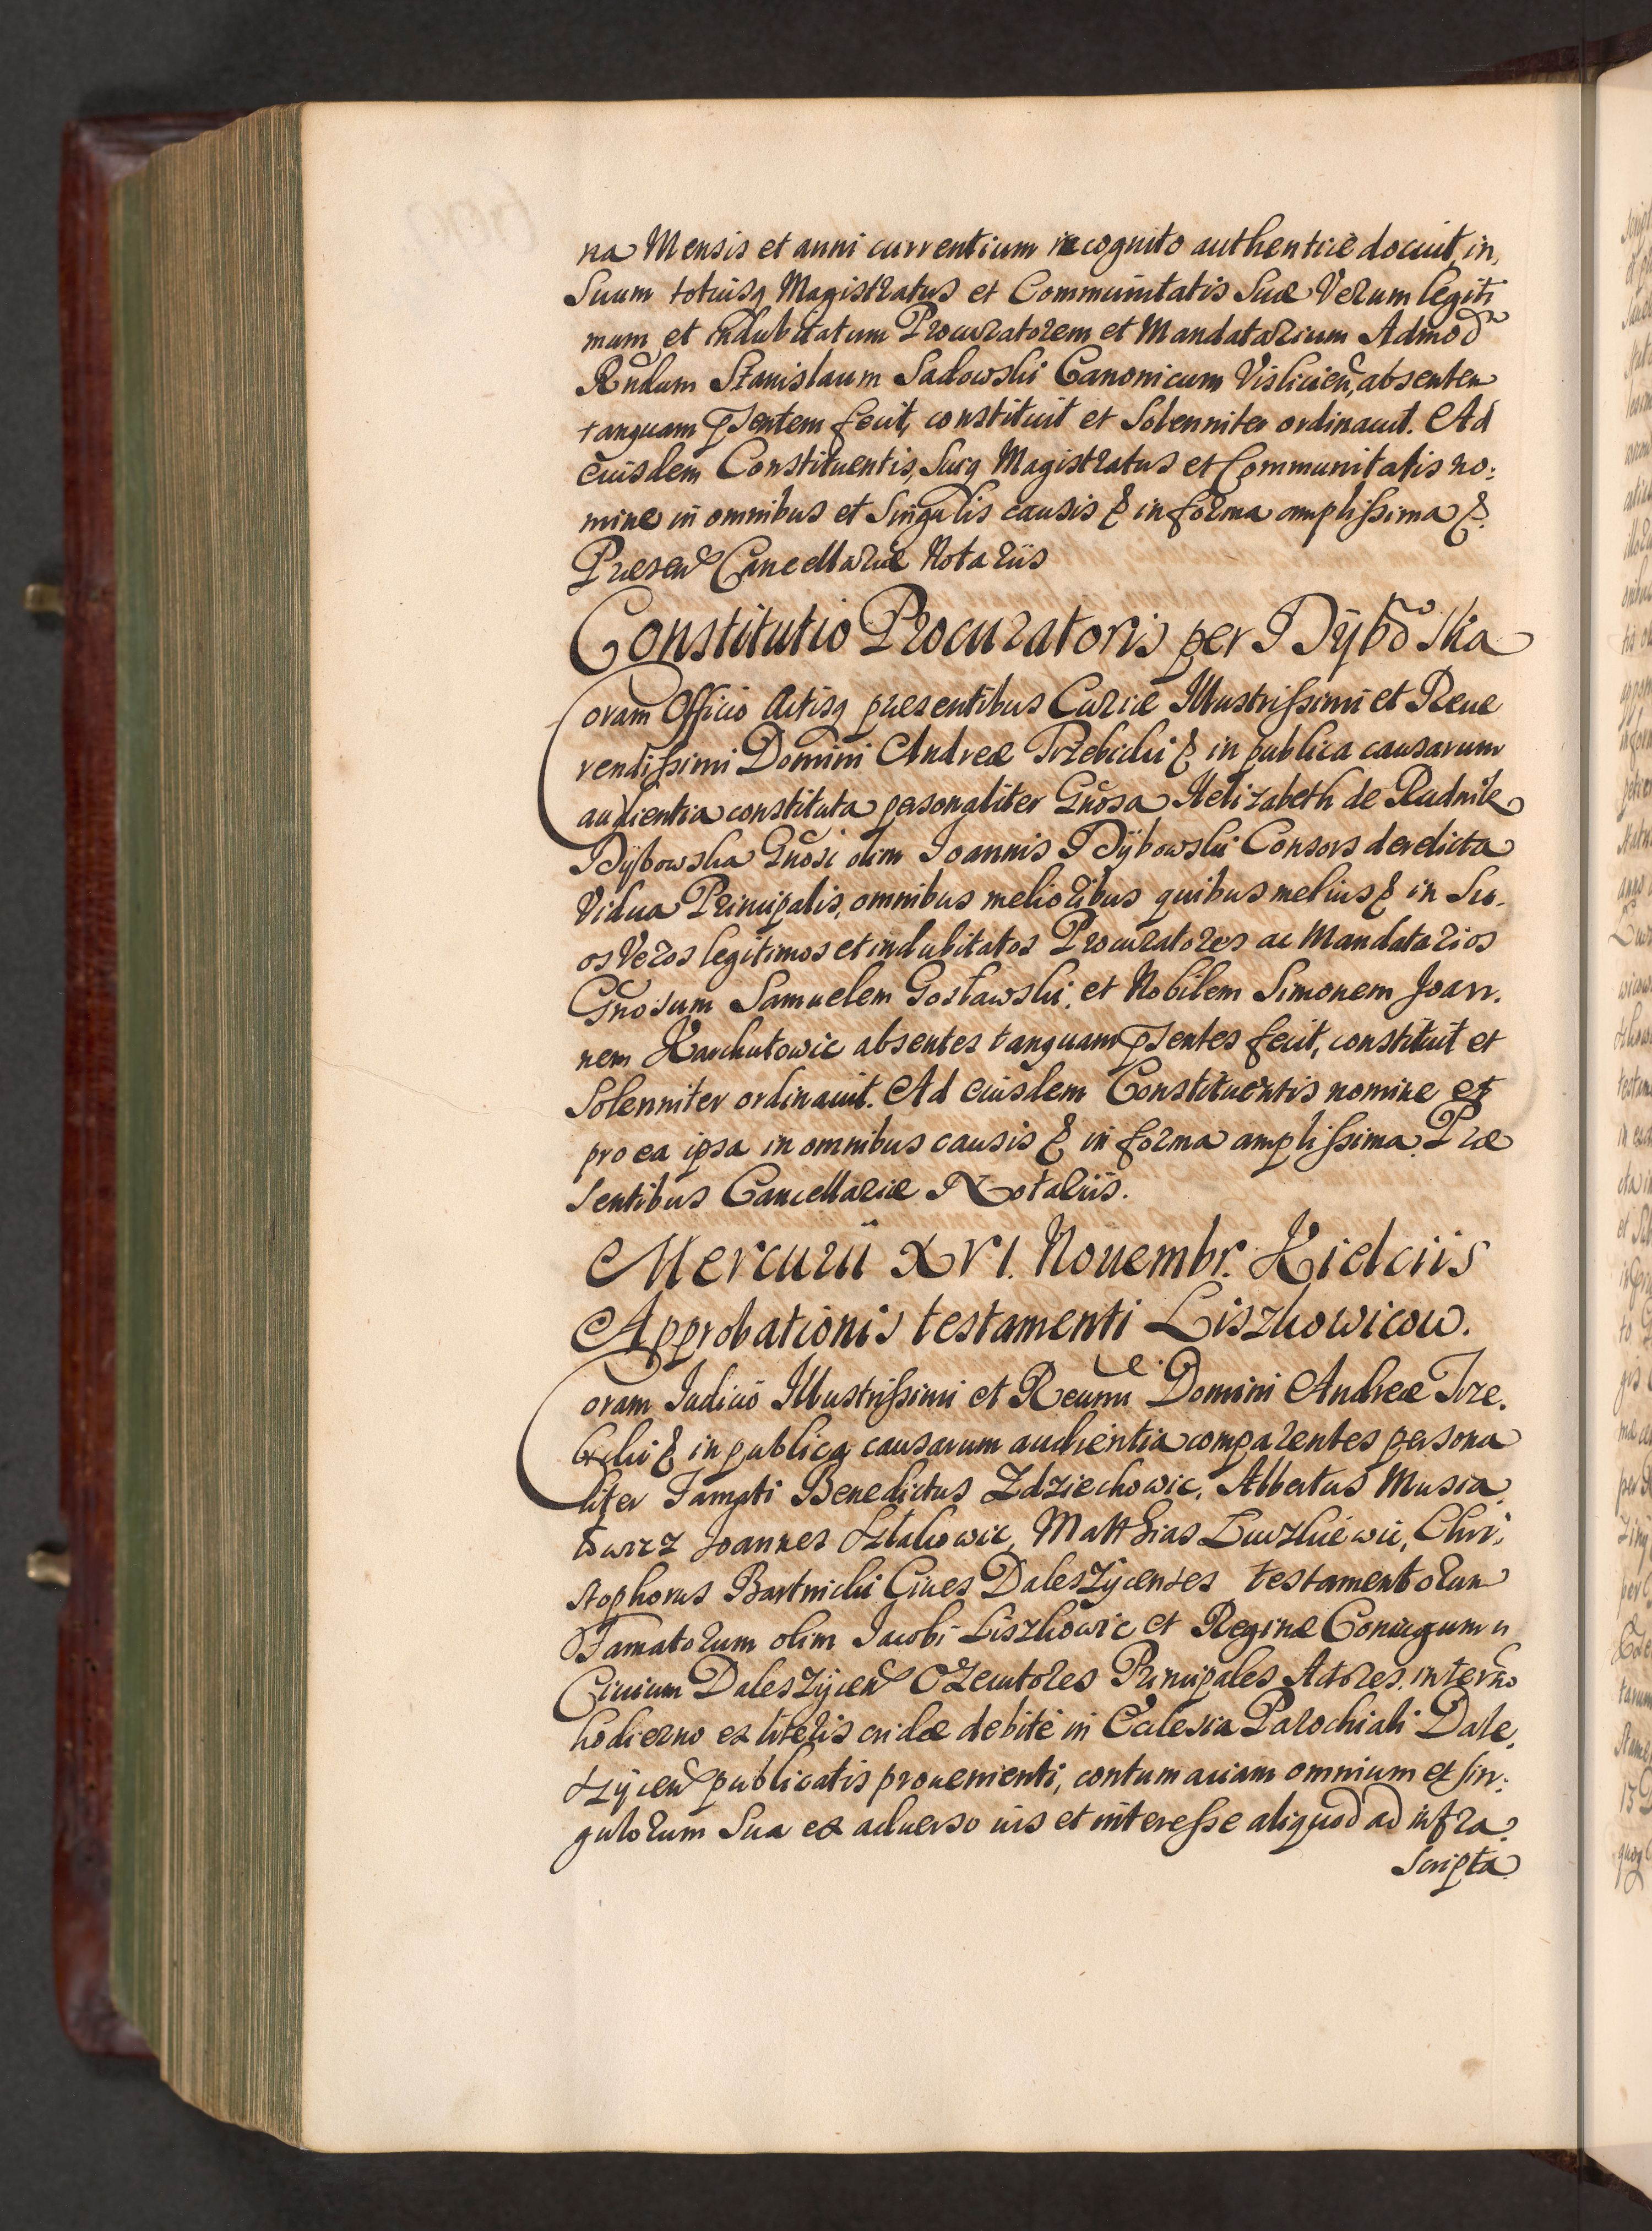 na Mensis et anni currentium recognito authentice docuit, in
Suum totiusq Magistratus et Communitatis Suæ Verum legiti
mum et indubitatum Procuratorem et Mandatarium Admod
Rndum Stanislaum Sadowski Canonicum Vislicien, absentem
tanquam psentem fecit, constituit et Solenniter ordinauit. Ad
eiusdem Constituentis, Suiq Magistratus et Communitatis no:
mine in omnibus et Singulis causis & in forma amplissima &.
Presen Cancellariæ Notariis
Constitutio Procuratoris per Dÿboska
Coram Officio Actisq presentibus Curiæ Illustrissimi et Reue
rendissimi Domini Andreæ Trzebicki & in publica causarum
audientia constituta personaliter Gnosa Helizabeth de Rudnik
Dÿbowska Gnosi olim Joannis Dÿbowski Consors derelicta
Vidua Principalis, omnibus melioribus quibus melius & in Su.
os Veros legitimos et indubitatos Procuratores ac Mandatarios
Gnosum Samuelem Gosławski, et Nobilem Simonem Joan.
nem Karchutowic absentes tanquam psentes fecit, constituit et
Solenniter ordinauit. Ad eiusdem Constituentis nomine et
pro ea ipsa in omnibus causis & in forma amplissima. Præ
sentibus Cancellariæ Notariis.
Mercurii XVI. Nouembr. Kielciis
Approbationis testamenti Liszkowicow.
Coram Judicio Illustrissimi et Reumi Domini Andreæ Trze.
bicki & in publica causarum audientia comparentes persona
liter Famati Benedictus Zdziechowic, Albertus Musia.
łowicz Joannes Stachowic, Matthias Luszkiewic, Chri:
stophorus Bartnicki Ciues Daleszÿcenses testamentorum
Famatorum olim Jacobi Liszkowic et Reginæ Coniugum
Ciuium Daleszÿcen Executores Principales Actores, in termno
hodierno ex literis cridæ debite in Ecclesia Parochiali Dale.
szÿcen publicatis prouenienti, contumaciam omnium et sin:
gulorum Sua ex aduerso ius et interesse aliquod ad infra.
Scripta